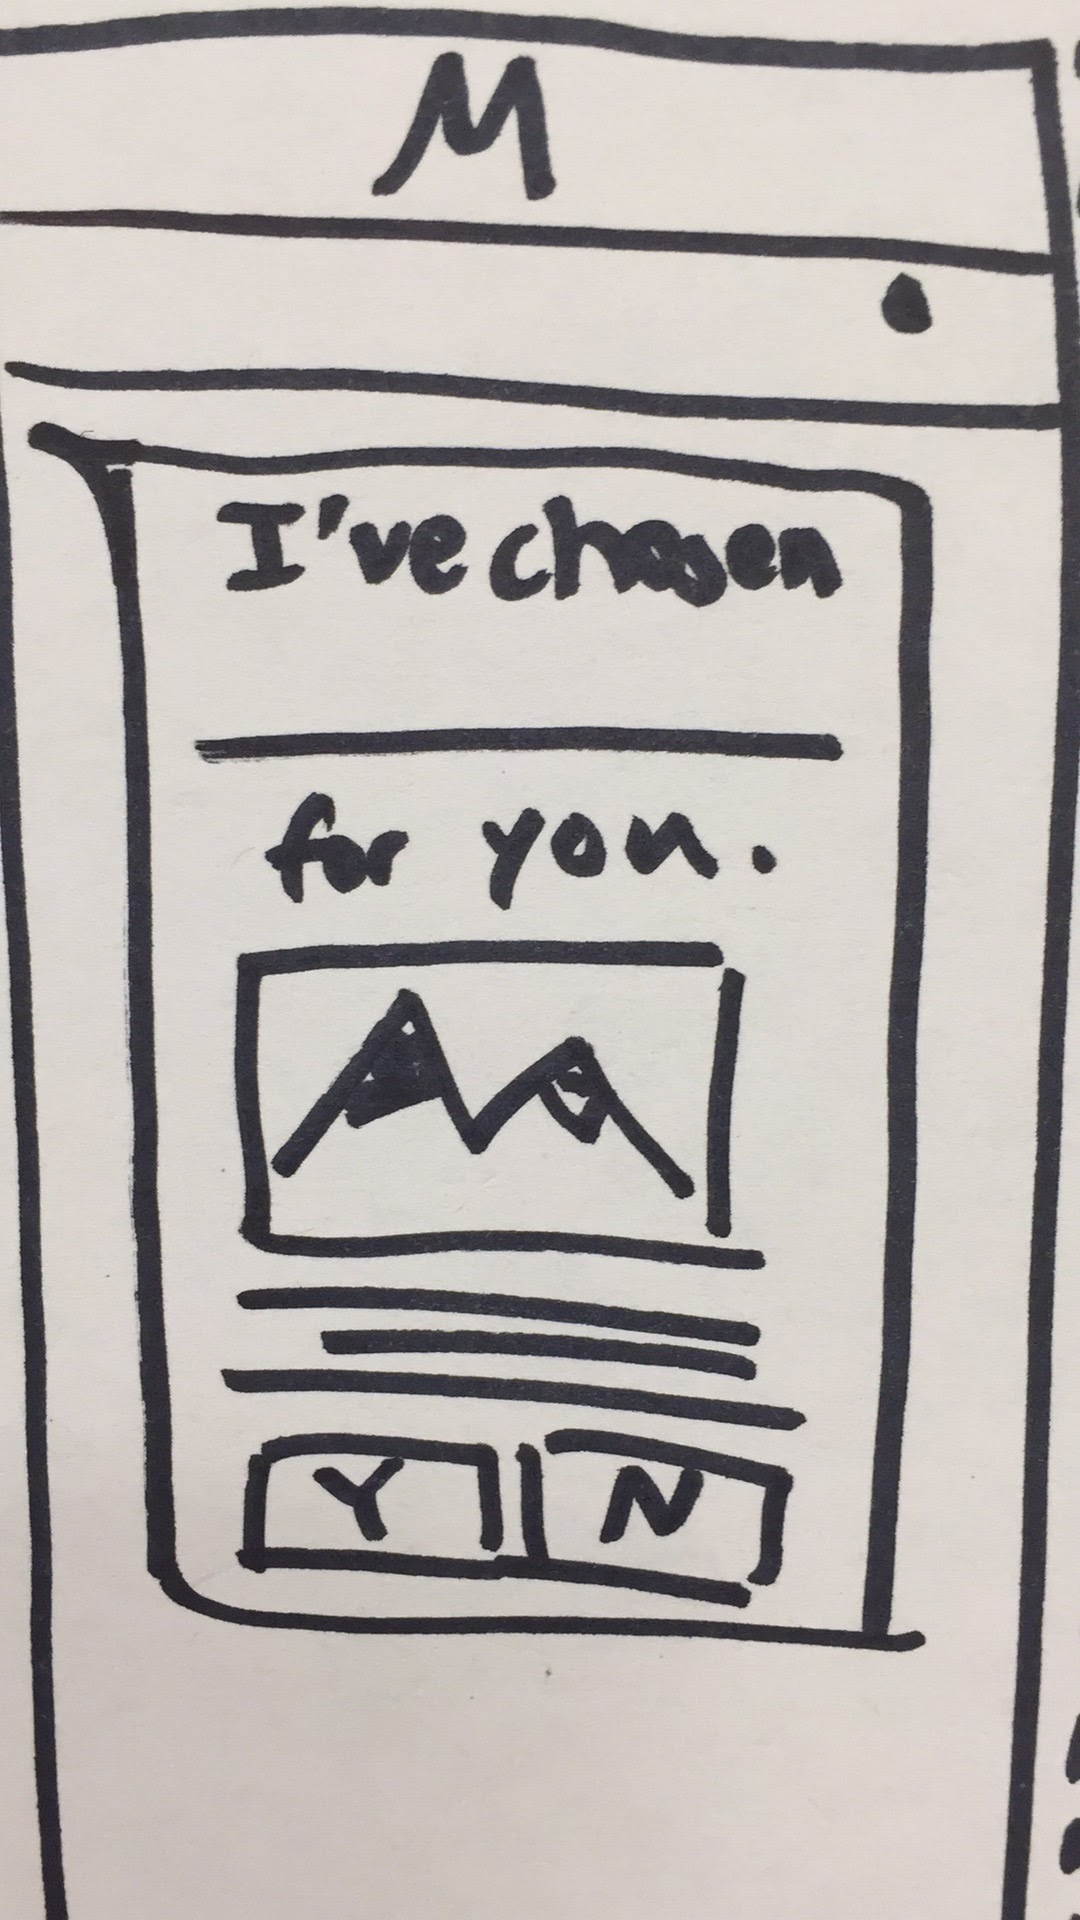 M
I've chosen
for you.
Y N